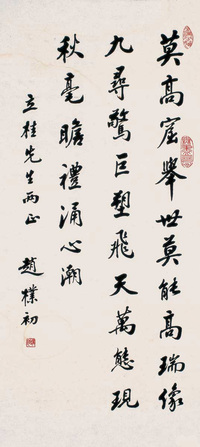 莫高窟舉世莫能高瑞像
九尋驚巨塑飛天萬態現
秋毫瞻禮涌心潮
立桂先生兩正
趙樸初